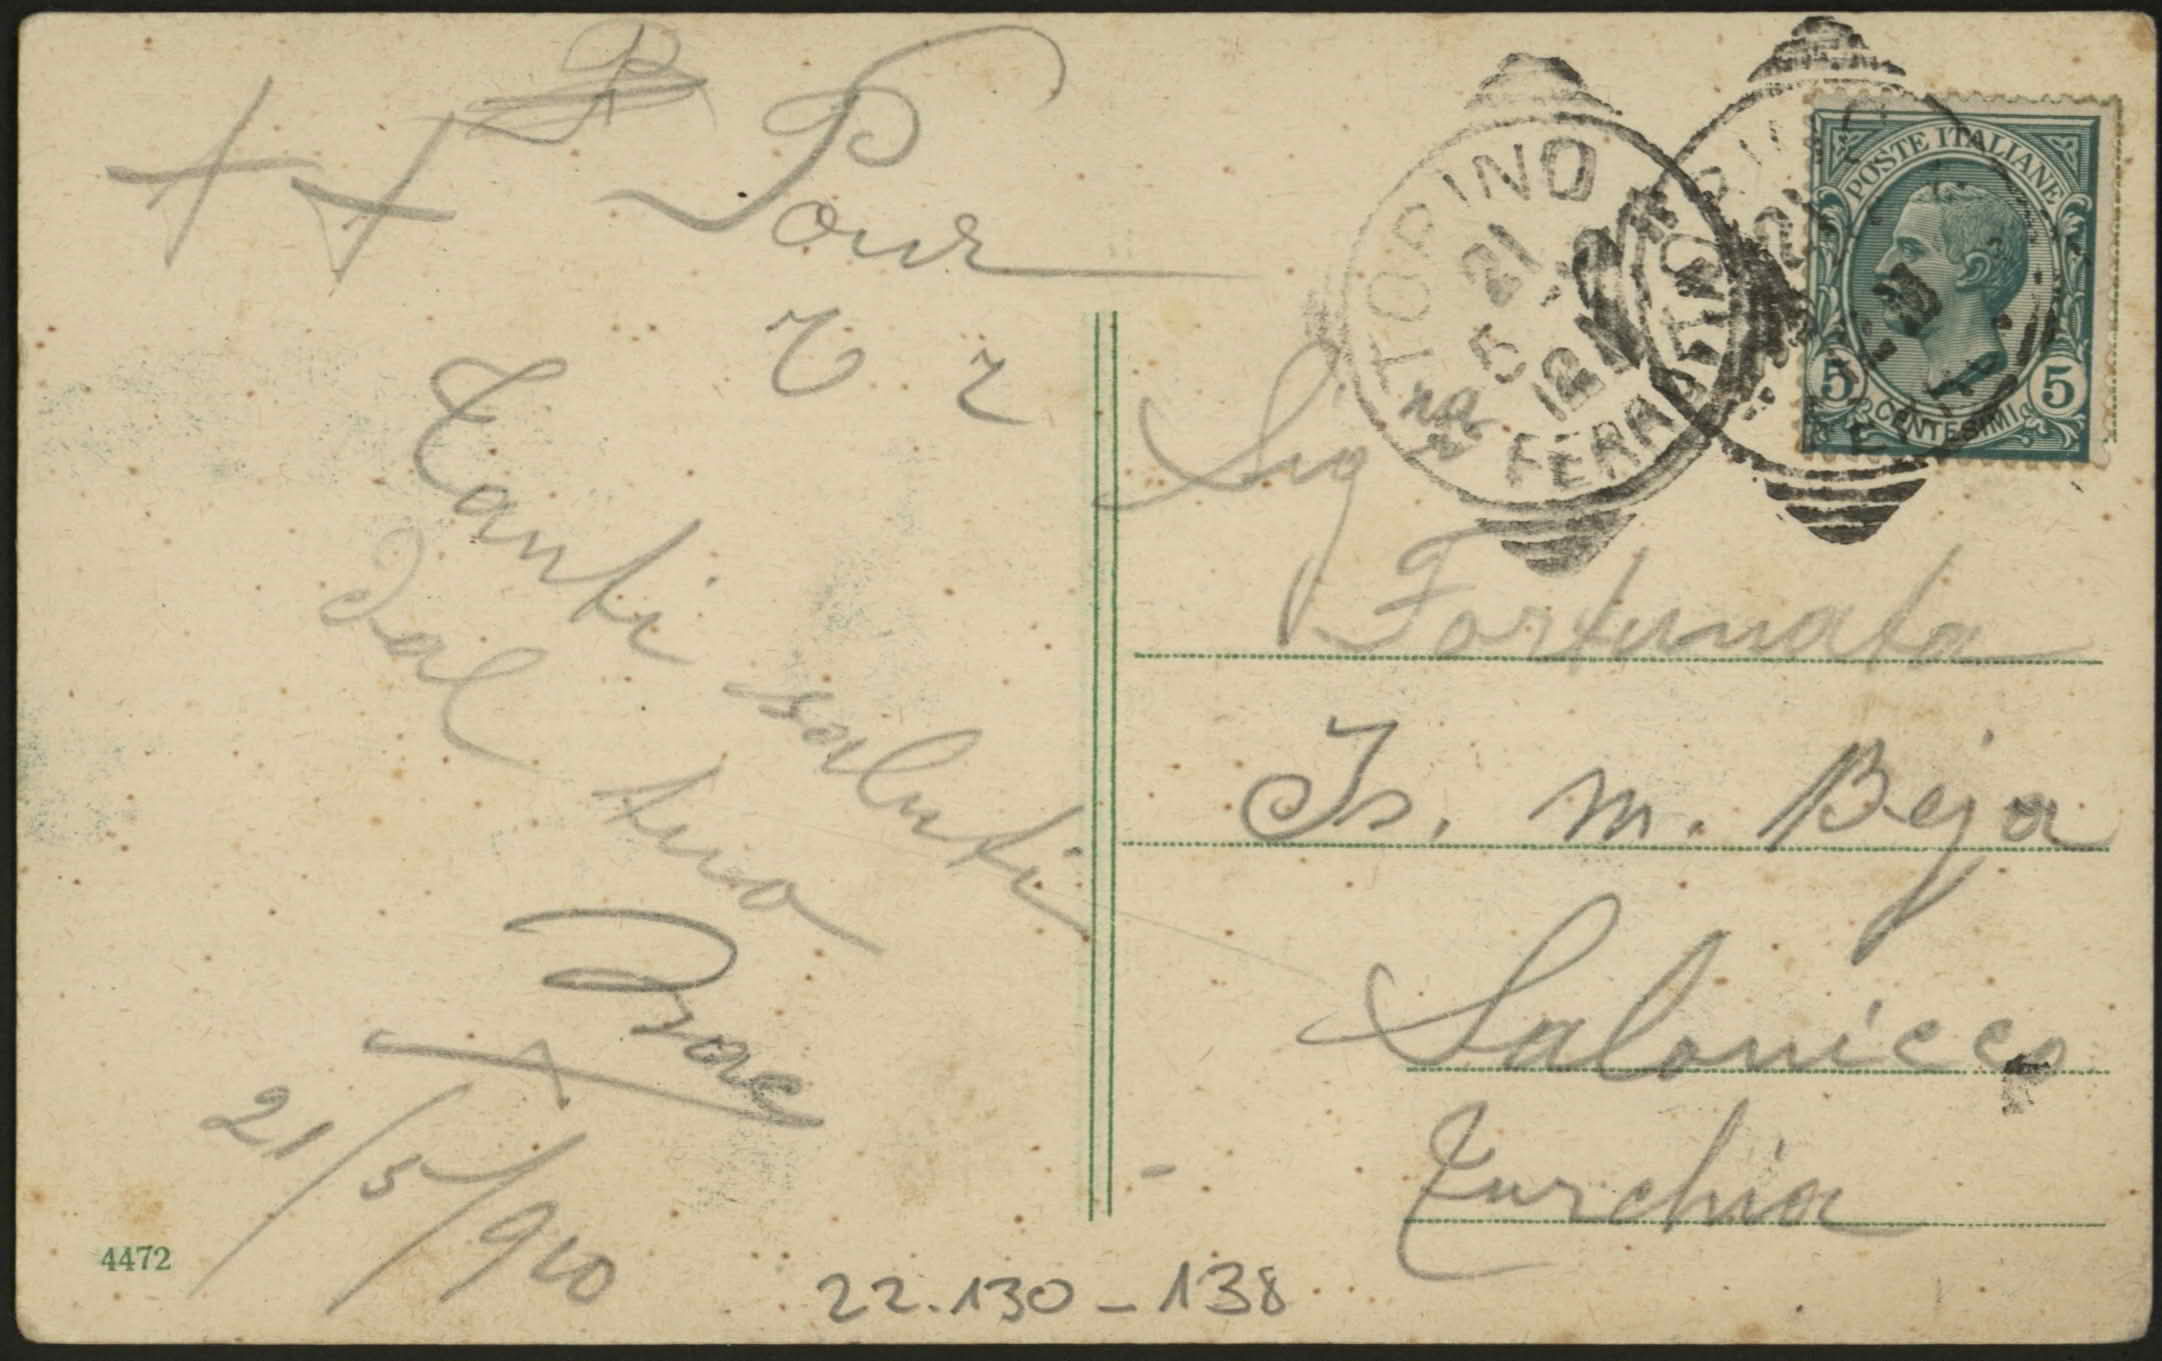 Pour
Tanti saluti
dal tuo
Isac
21/5/910
4472
22.130-138
TORINO
21 5
12
FERROVIA
POSTE ITALIANE
5 5
CENTESIMI
Sigra
Fortunata
Is. M. Beja
Salonicco
Turchia